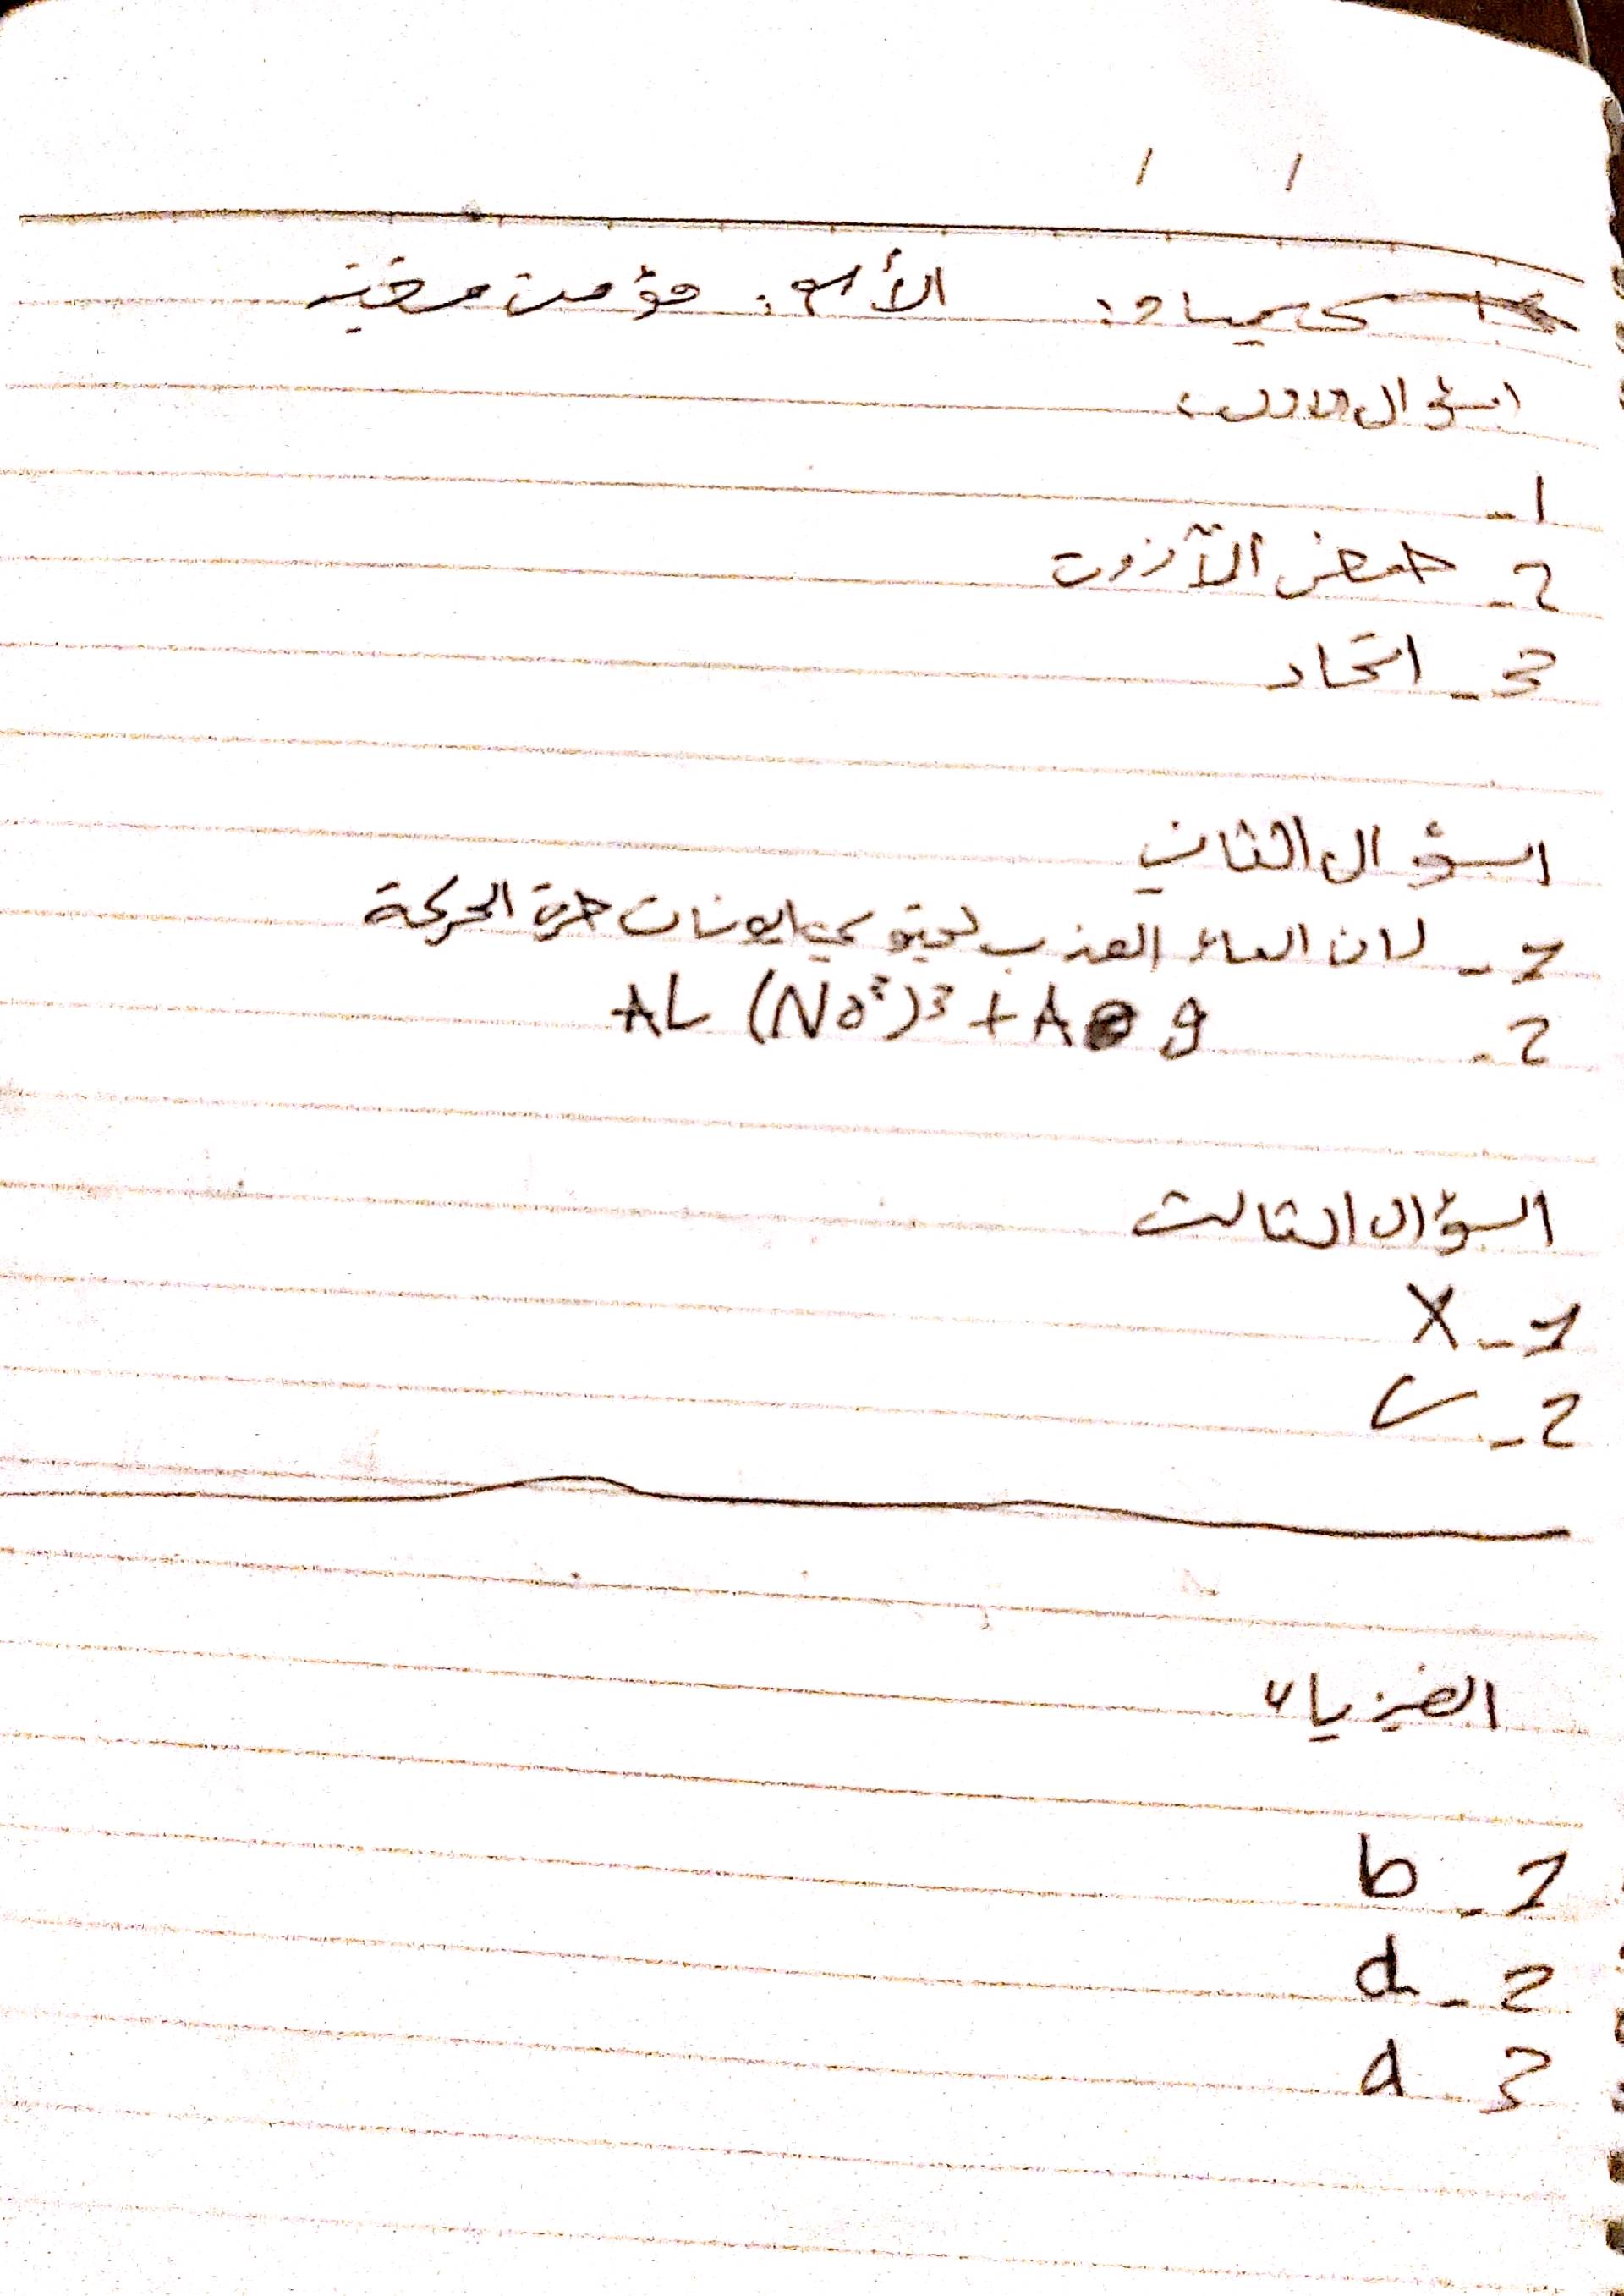 كيمياء: الأسم: مؤمن مغية
السؤال الاول:
1-
2- حمض الآزوت
3- اتحاد
السؤال الثاني
1- لان الماء العذب يحتوي ايونات حرة الحركة
2- AL (No³)³ + A g
السؤال الثالث
1- X
2- ✓
الفيزياء
1- b
2- d
3- d